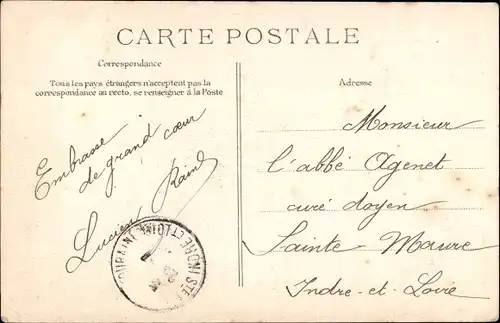 CARTE POSTALE
Correspondance
Tous les pays étrangers n'acceptent pas la
correspondance au recto, se renseigner à la Poste
Adresse
Embrasse
de grand cœur
Lucien
Monsieur
l'abbé Agenet
curé doyen
Sainte Maure
Indre-et-Loire
INDRE ET LOIRE